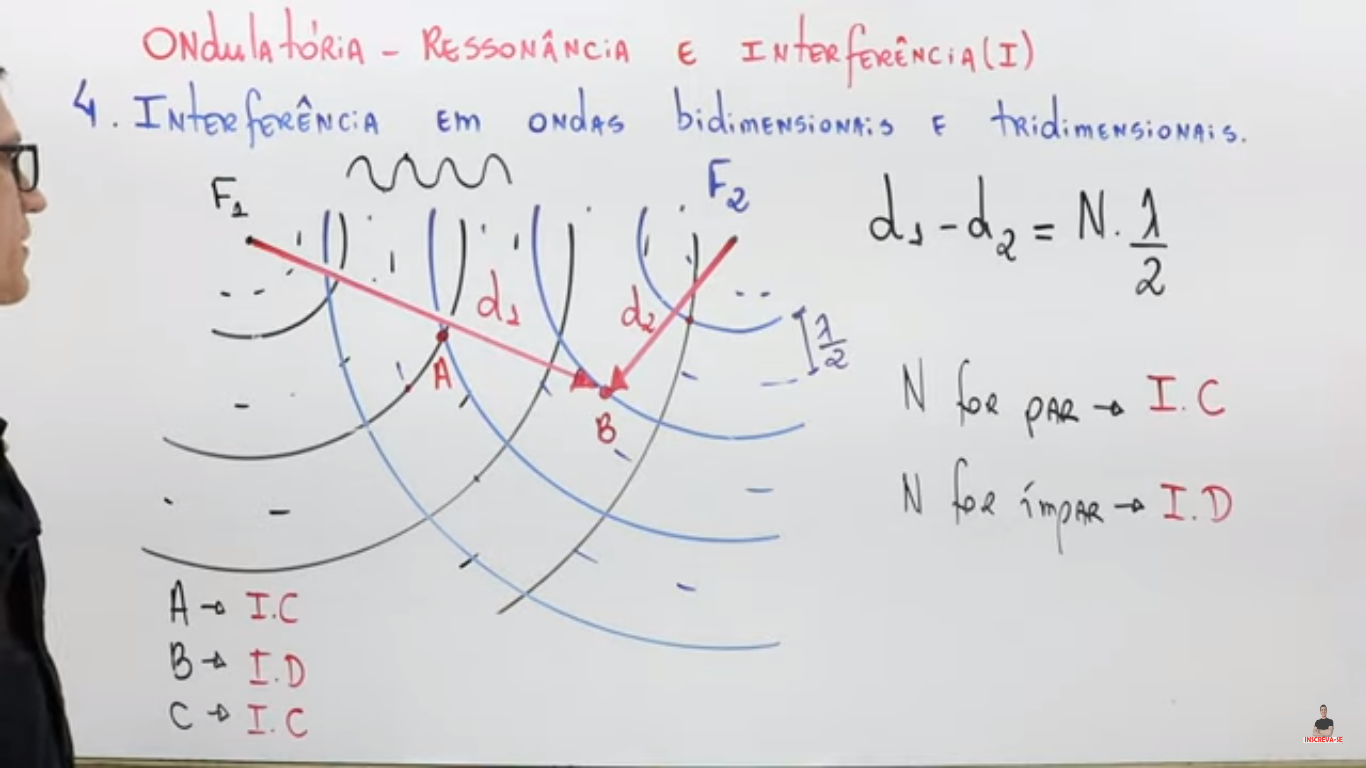 ONdulAtóRiA - RESSONÂNCiA E INtERfERÊNCiA(I)
4. INtERfERÊNCiA EM ONdAS bidiMENSiONAiS E tRidiMENSiONAiS.
F₁
F₂
d₁ - d₂ = N. λ/2
d₁
d₂
λ/2
A
B
N foR PAR → I.C
N foR ímPAR → I.D
A → I.C
B → I.D
C → I.C
INSCREVA-SE